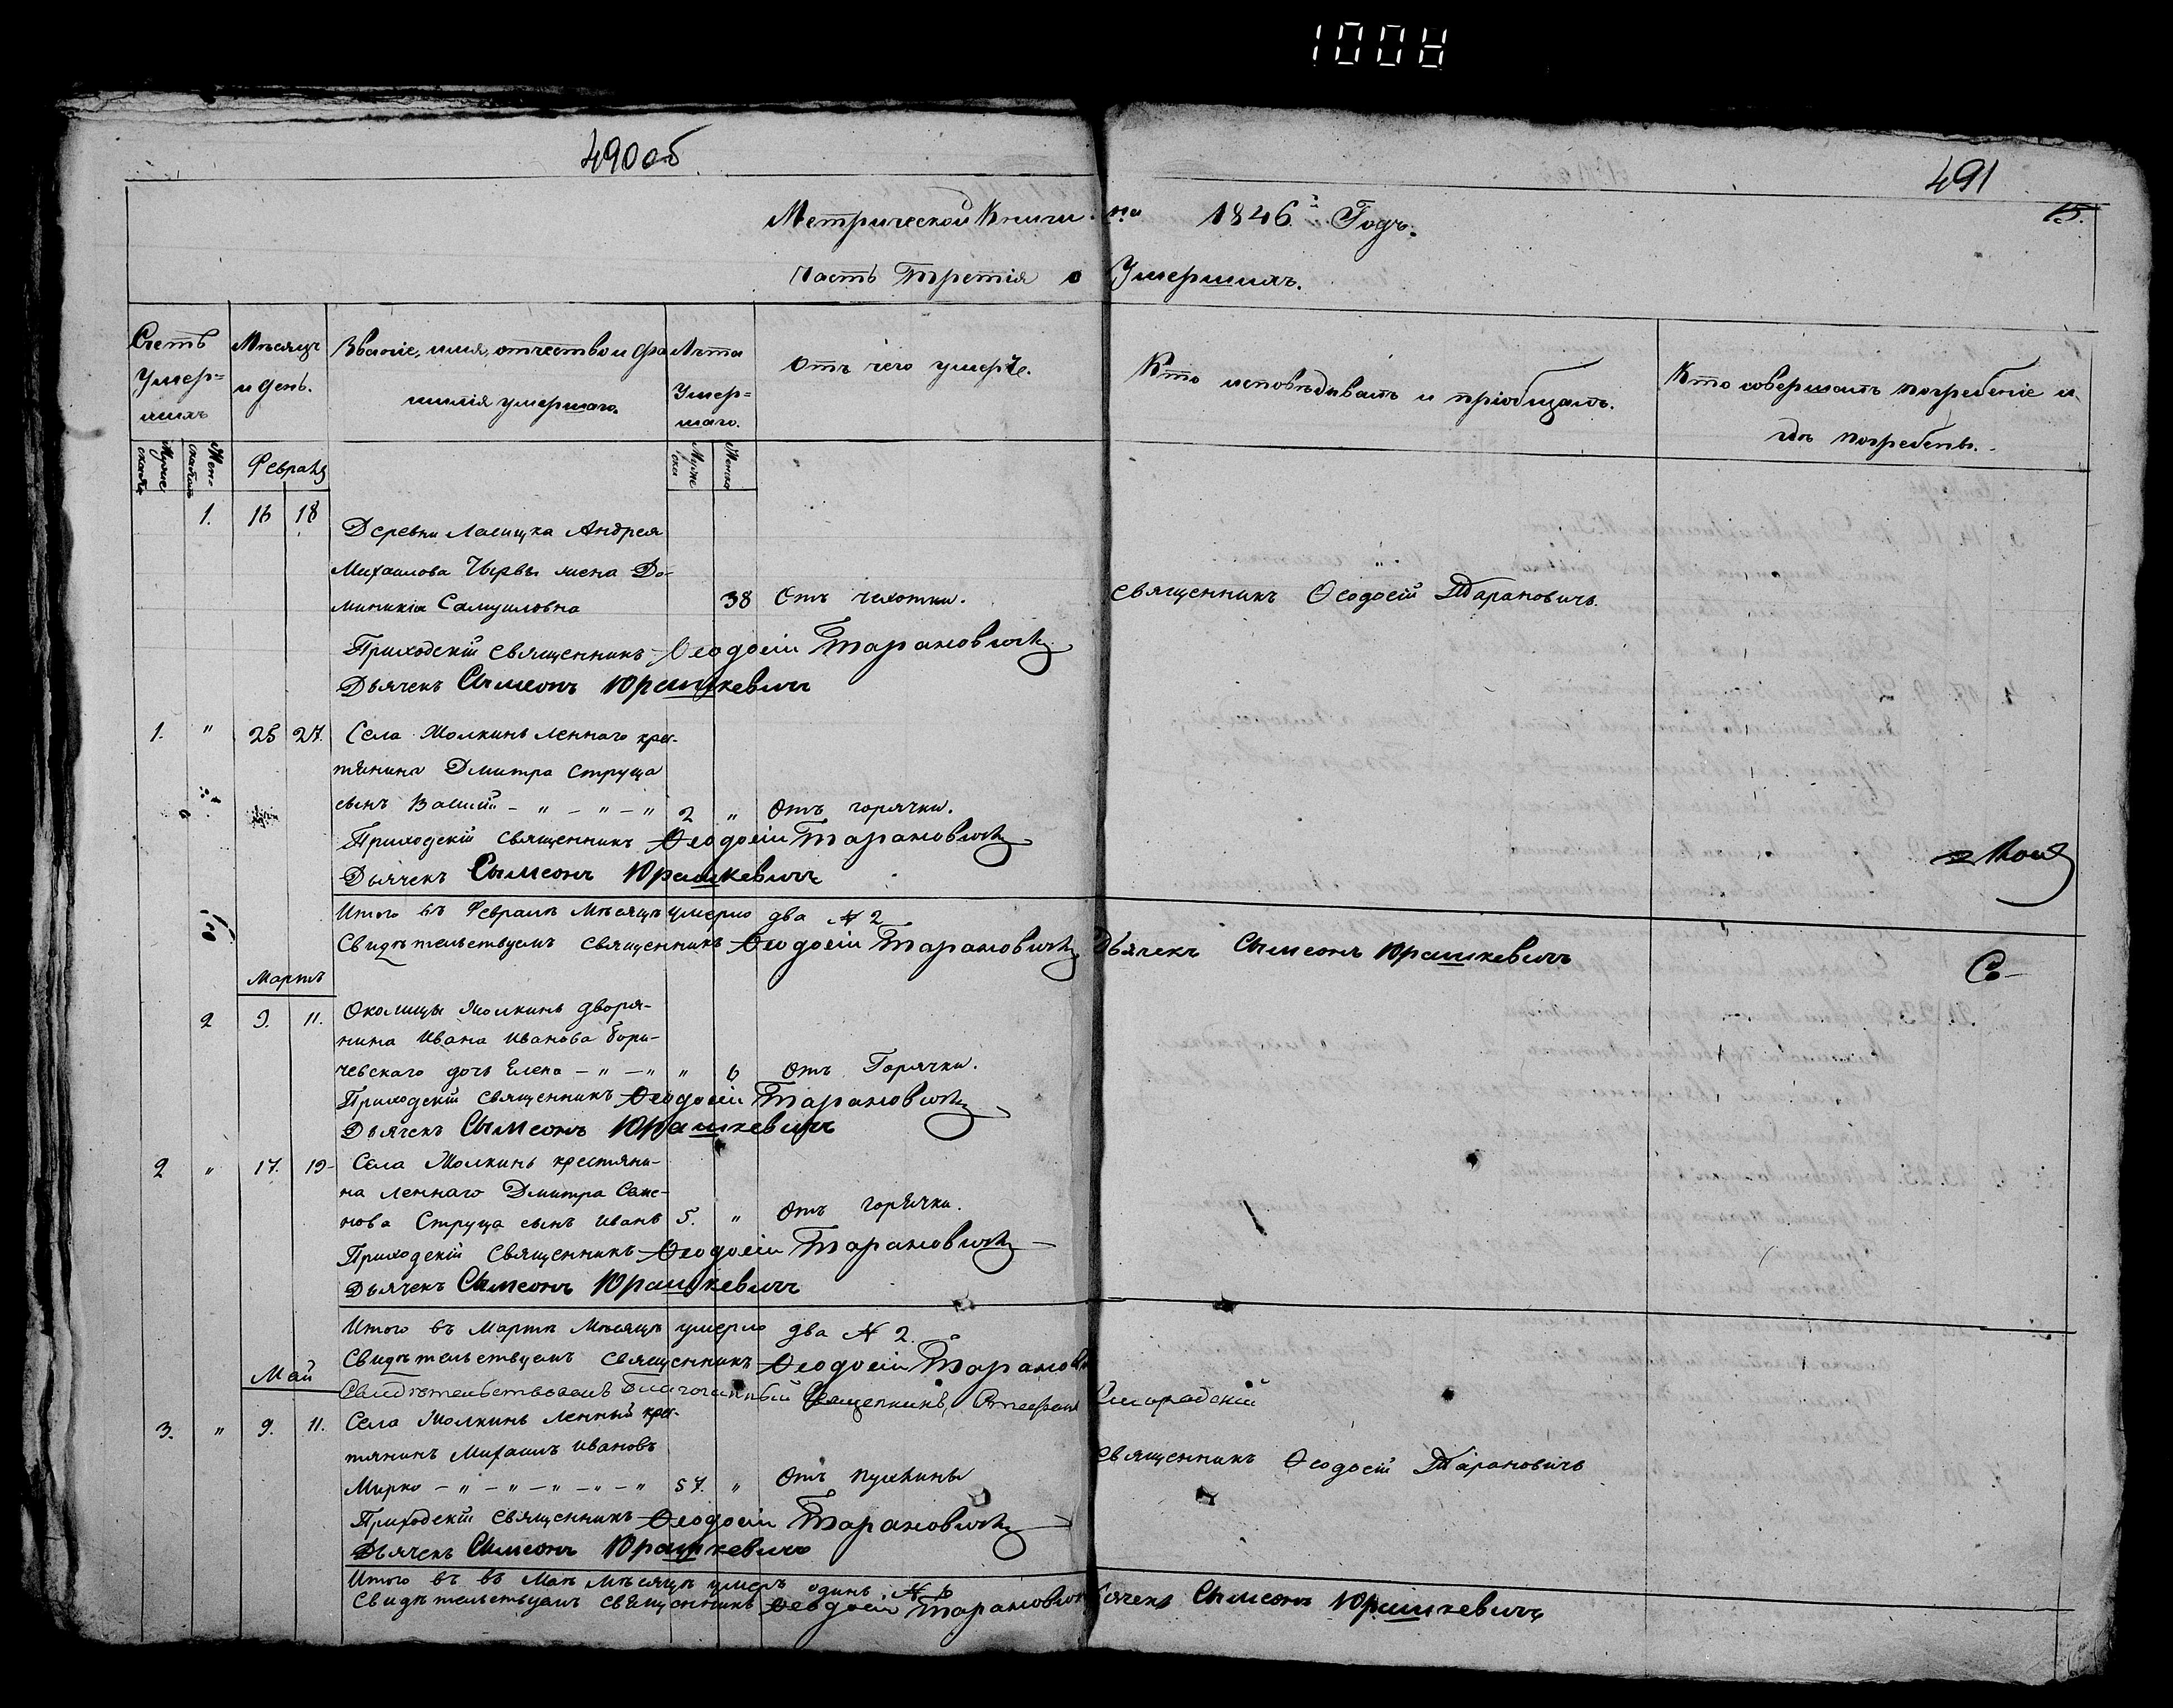 1008
490 об
491
15.
Метрической Книги на 1846й Годъ.
Часть Третія о Умершихъ.
Счетъ Умер=шихъ
Мѣсяцъ и день.
Званіе, имя, отчество и фамилія умершаго.
Лѣта Умер=шаго.
Отъ чего умерте.
Кто исповѣдывалъ и пріобщалъ.
Кто совершалъ погребеніе и гдѣ погребены.
Февраля
1. 16 18 Деревни Ласицка Андрея
Михаилова жена До-
миникія Самуиловна 38 Отъ чехотки. Священникъ Ѳеодосій Тарановичъ.
Приходскій Священникъ Ѳеодосій Тарановичъ
Дьячекъ Сымеонъ Юрашкевичъ
1. " 25 27. Села Жолкинь леннаго крес-
тянина Дмитра Струца
сынъ Василій – " – " – " 2 " Отъ горячки.
Приходскій Священникъ Ѳеодосій Тарановичъ
Дьячекъ Сымеонъ Юрашкевичъ
Итого въ Февралѣ Мѣсяцѣ умерло два № 2
Свидѣтельствуемъ Священникъ Ѳеодосій Тарановичъ Дьячекъ Сымеонъ Юрашкевичъ
Со-
Мартъ
2 9. 11. Околицы Жолкинь дворя-
нина Ивана Иванова Бори-
чевскаго дочь Елена – " – " " 6 Отъ Горячки.
Приходскій Священникъ Ѳеодосій Тарановичъ
Дьячекъ Сымеонъ Юрашкевичъ
2 " 17. 19- Села Жолкинь крестяни-
на леннаго Дмитра
Струца сынъ Иванъ 5. " Отъ горячки.
Приходскій Священникъ Ѳеодосій Тарановичъ
Дьячекъ Сымеонъ Юрашкевичъ
Итого въ Мартѣ Мѣсяцѣ умерло два № 2.
Свидѣтельствуемъ Священникъ Ѳеодосій Таранов
Май
Свидѣтельствовалъ благочинный Священникъ,
3. " 9. 11. Села Жолкинь ленный крес-
тянинъ Михаилъ Ивановъ
Мирко – " – " – " – " – " 57. " Отъ пухлины Священникъ Ѳеодосій Тарановичъ
Приходскій Священникъ Ѳеодосій Тарановичъ
Дьячекъ Сымеонъ Юрашкевичъ
Итого въ въ Маѣ Мѣсяцѣ умеръ одинъ №
Свидѣтельствуемъ Священникъ Ѳеодосій Тарановичъ Дьячекъ Сымеонъ Юрашкевичъ